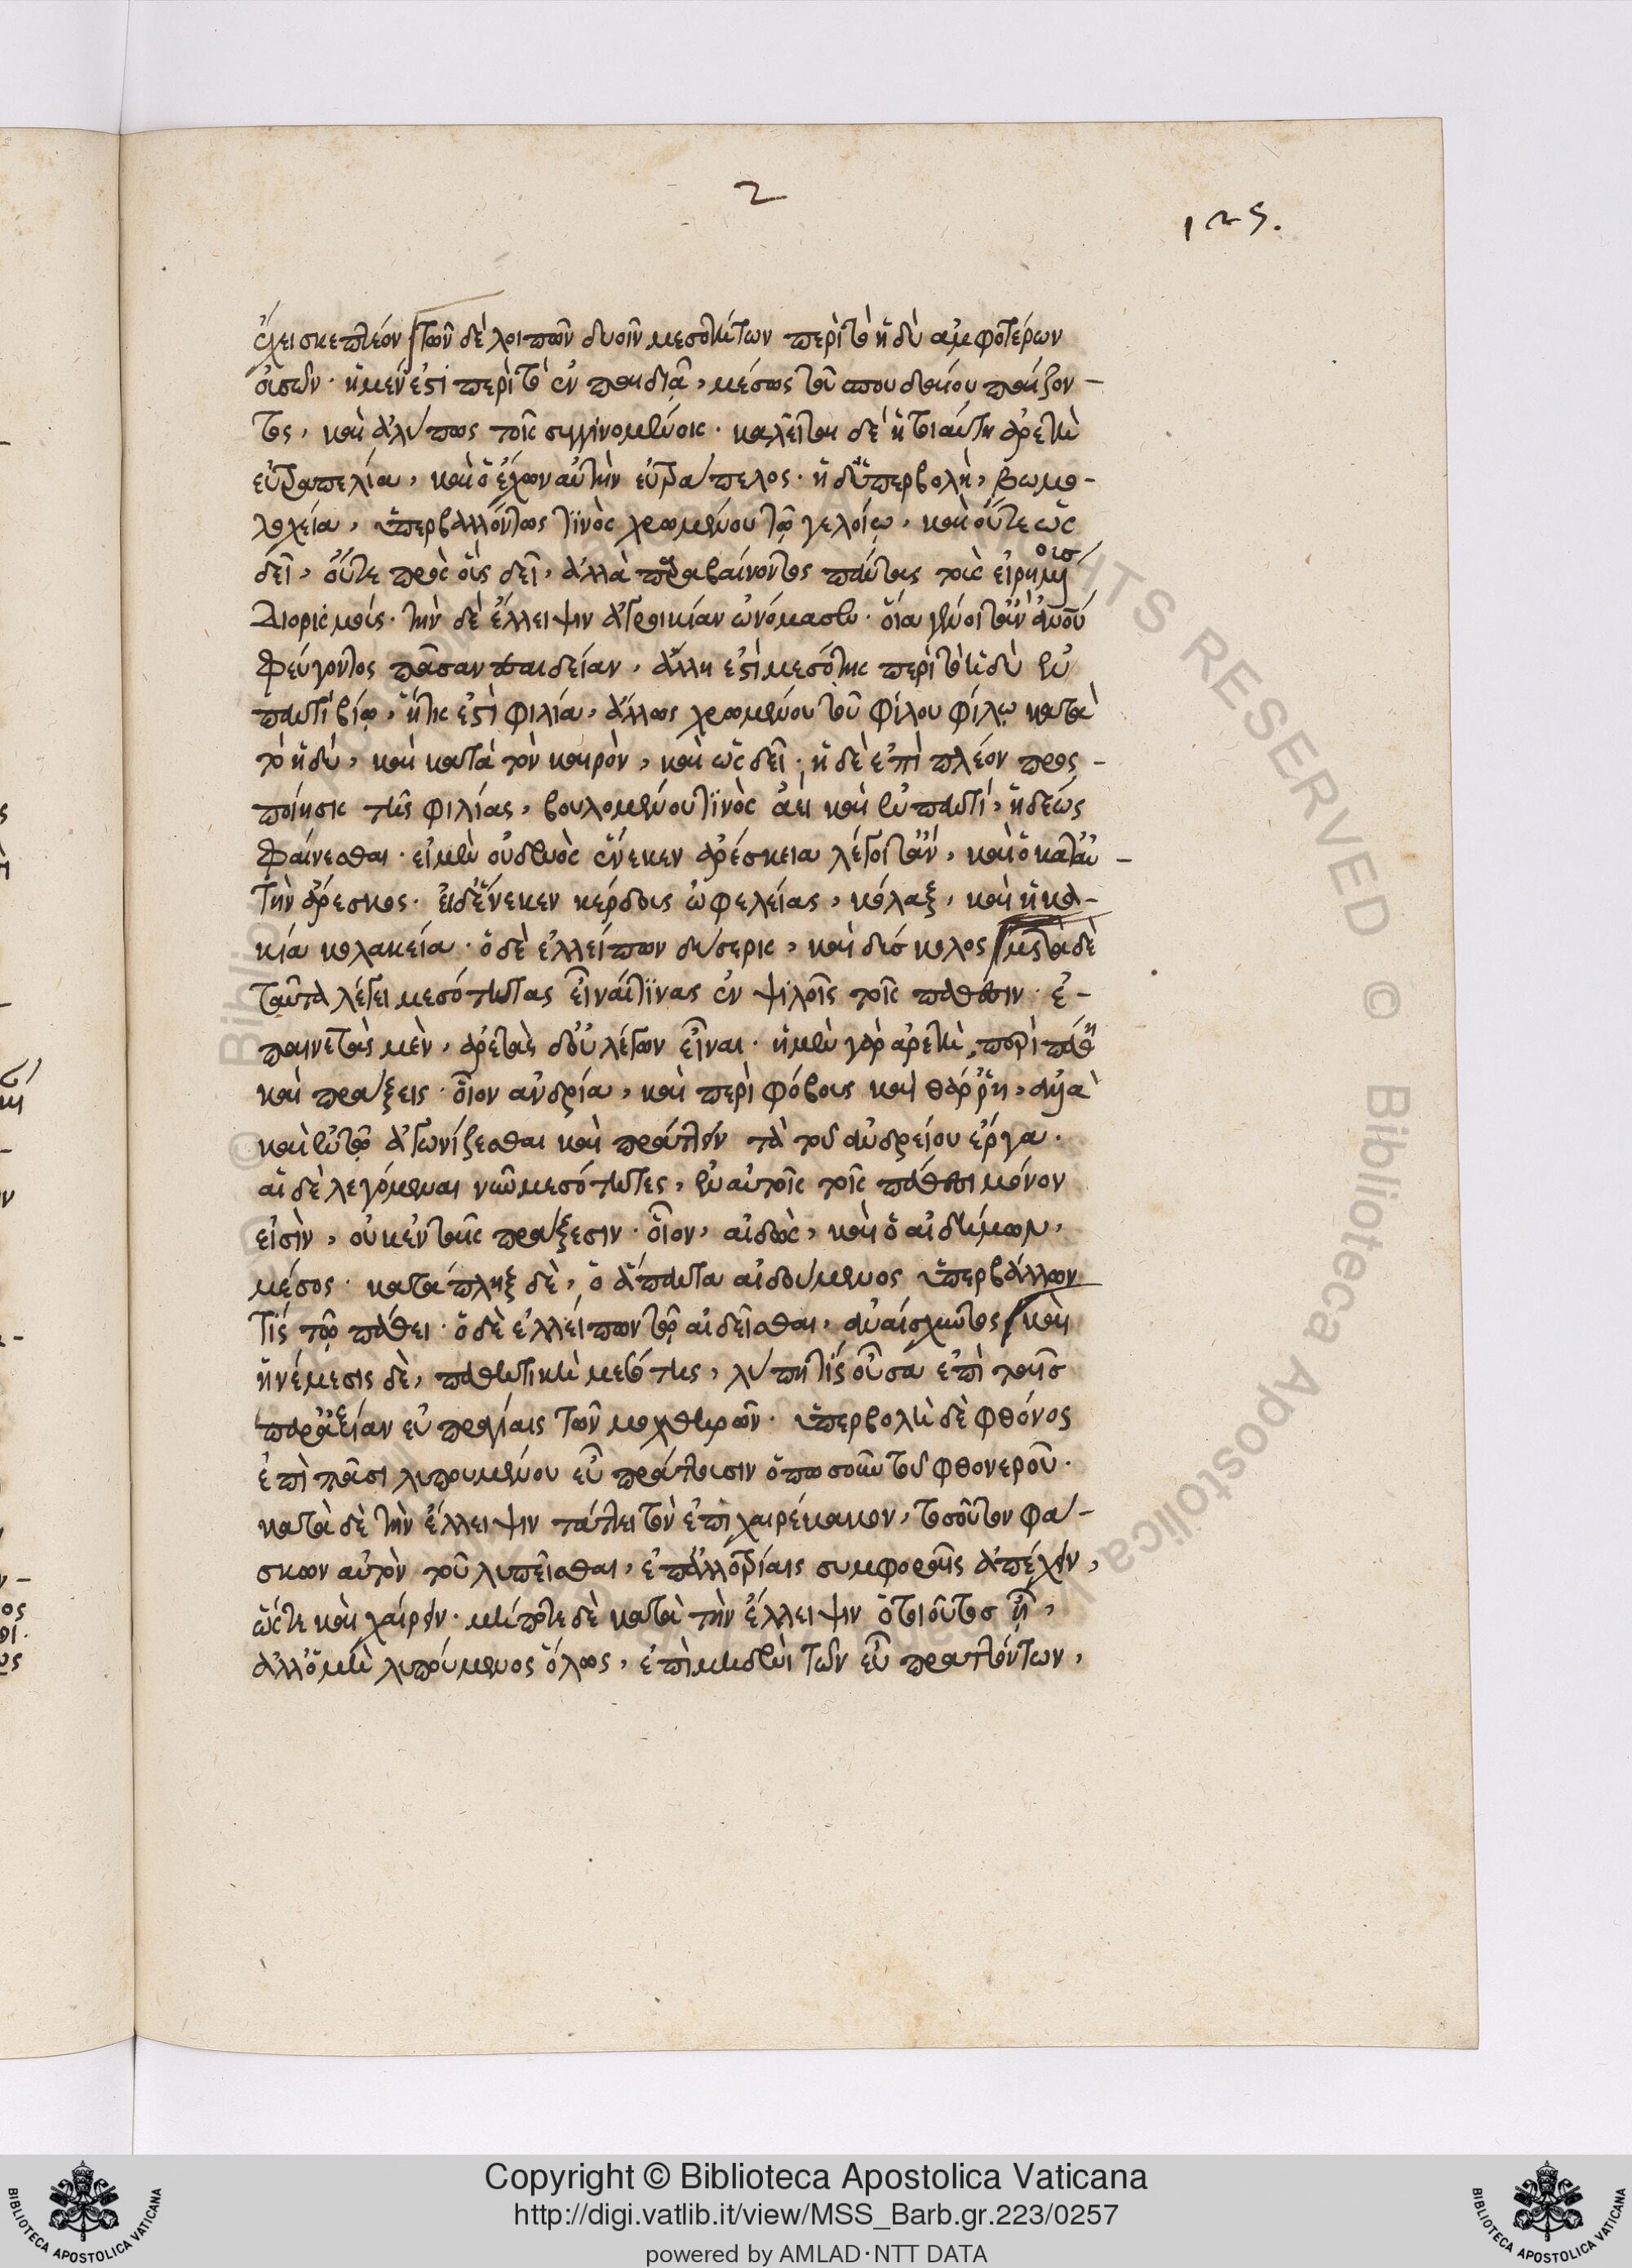 2
125.
ἔχει σκεπτέον τῶν δὲ λοιπῶν δυοῖν μεσοτήτων περὶ τὸ ἡδὺ ἀμφοτέρων
οὐσῶν. ἡ μέν ἐστι περὶ τὸ ἐν παιδιᾷ, μέσως τοῦ σπουδαίου παίζον-
τος, καὶ ἀλύπως τοῖς συγγινομένοις. καλεῖται δὲ ἡ τοιαύτη ἀρετὴ
εὐτραπελία, καὶ ὁ ἔχων αὐτὴν εὐτράπελος. ἡ δ' ὑπερβολὴ, βωμο-
λοχεία, ὑπερβαλλόντως τινὸς χρωμένου τῷ γελοίῳ, καὶ οὔτε ὡς
δεῖ, οὔτε πρὸς οὓς δεῖ, ἀλλὰ παραβαίνοντος πάντας τοὺς εἰρημένους
διορισμούς. τὴν δὲ ἔλλειψιν ἀγροικίαν ὠνόμασεν. οἵα γένοιτ' ἂν αὐτοῦ
φεύγοντος πᾶσαν παιδείαν. ἄλλη ἐστὶ μεσότης περὶ τὸ ἡδὺ ἐν
παντὶ βίῳ, ἥτις ἐστὶ φιλία, ἄλλως χρωμένου τοῦ φίλου φίλῳ κατὰ
τὸ ἡδύ, καὶ κατὰ τὸν καιρὸν, καὶ ὡς δεῖ. ἡ δὲ ἐπὶ πλέον προς-
ποίησις τῆς φιλίας, βουλομένου τινὸς ἀεὶ καὶ ἐν παντί, ἡδέως
φαίνεσθαι. εἰ μὲν οὐδενὸς ἕνεκεν ἀρέσκεια λέγοιτ' ἄν, καὶ ὁ κατ' αὐ-
τὴν ἄρεσκος. εἰ δ' ἕνεκεν κέρδους ὠφελείας, κόλαξ, καὶ ἡ κα-
κία κολακεία. ὁ δὲ ἐλλείπων δύσερις, καὶ δύσκολος μετὰ δὲ
ταῦτα λέγει μεσότητας εἶναί τινας ἐν ψιλοῖς τοῖς πάθεσιν. ἐ-
παινετὰς μὲν, ἀρετὰς δ' οὐ λέγων εἶναι. ἡ μὲν γὰρ ἀρετὴ, περὶ πάθη
καὶ πράξεις. οἷον ἀνδρία, καὶ περὶ φόβους καὶ θάρρη, ἀλλὰ
καὶ ἐν τῷ ἀγωνίζεσθαι καὶ πράττειν τὰ τοῦ ἀνδρείου ἔργα.
αἱ δὲ λεγόμεναι νῦν μεσότητες, ἐν αὐτοῖς τοῖς πάθεσι μόνον
εἰσὶν, οὐκ ἐν ταῖς πράξεσιν. οἷον, αἰδὼς, καὶ ὁ αἰδήμων,
μέσος. κατάπληξ δὲ, ὁ ἅπαντα αἰδούμενος ὑπερβάλλων
τίς τῷ πάθει. ὁ δὲ ἐλλείπων τῷ αἰδεῖσθαι, ἀναίσχυντος καὶ
ἡ νέμεσις δὲ, παθητικὴ μεσότης, λύπη τίς οὖσα ἐπὶ ταῖς
παρ' ἀξίαν εὐπραγίαις τῶν μοχθηρῶν. ὑπερβολὴ δὲ φθόνος
ἐπὶ πᾶσι λυπουμένου εὖ πράττουσιν ὁπωσοῦν τοῦ φθονεροῦ.
κατὰ δὲ τὴν ἔλλειψιν τάττει τὸν ἐπιχαιρέκακον, τοσοῦτον φά-
σκων αὐτὸν τοῦ λυπεῖσθαι, ἐπ' ἀλλοτρίαις συμφοραῖς ἀπέχειν,
ὥστε καὶ χαίρειν. μήποτε δὲ κατὰ τὴν ἔλλειψιν ὁ τοιοῦτος ᾖ,
ἀλλ' ὁ μὴ λυπούμενος ὅλως, ἐπὶ μηδενὶ τῶν εὖ πραττόντων,
Copyright © Biblioteca Apostolica Vaticana
http://digi.vatlib.it/view/MSS_Barb.gr.223/0257
powered by AMLAD·NTT DATA